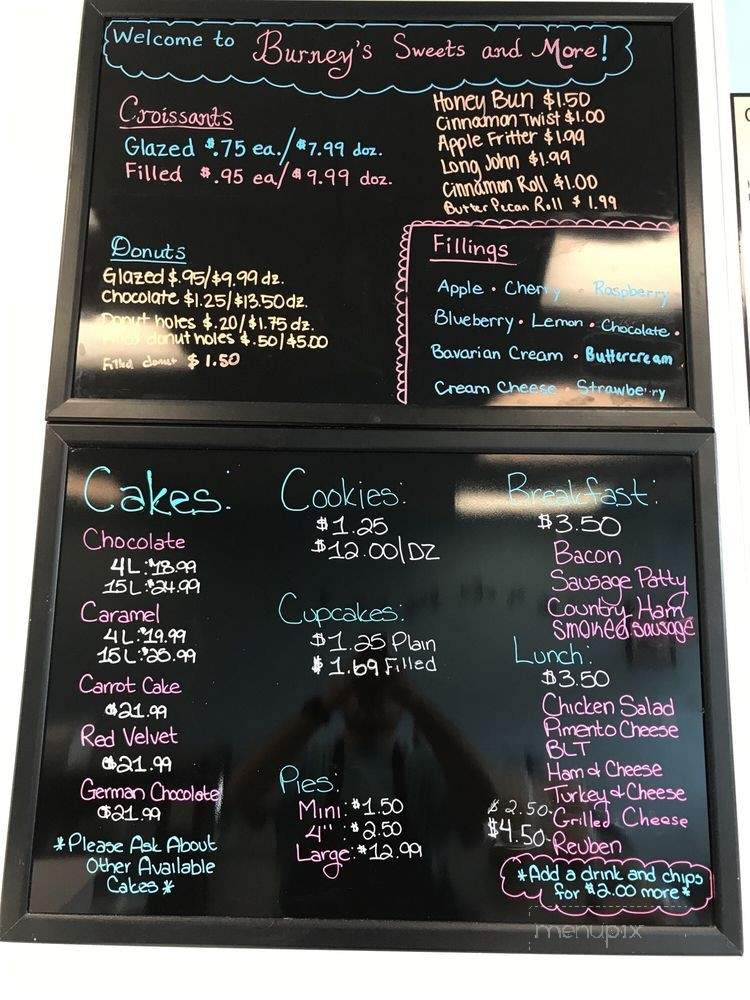 Welcome to Burney's Sweets and More!
Croissants
Glazed $.75 ea./$7.99 doz.
Filled $.95 ea/$9.99 doz.
Honey Bun $1.50
Cinnamon Twist $1.00
Apple Fritter $1.99
Long John $1.99
Cinnamon Roll $1.00
Butter Pecan Roll $1.99
Donuts
Glazed $.95/$9.99 dz.
Chocolate $1.25/$13.50 dz.
Donut holes $.20/$1.75 dz.
donut holes $.50/$5.00
Filled donut $1.50
Fillings
Apple • Cherry • Raspberry
Blueberry • Lemon • Chocolate •
Bavarian Cream • Buttercream
Cream Cheese • Strawberry
Cakes:
Chocolate
4L: $18.99
15L: $24.99
Caramel
4L: $19.99
15L: $25.99
Carrot Cake
$21.99
Red Velvet
$21.99
German Chocolate
$21.99
*Please Ask About
Other Available
Cakes*
Cookies:
$1.25
$12.00/DZ
Cupcakes:
$1.25 Plain
$1.69 Filled
Pies:
Mini: $1.50
4": $2.50
Large: $12.99
Breakfast:
$3.50
Bacon
Sausage Patty
Country Ham
Smoked sausage
Lunch:
$3.50
Chicken Salad
Pimento Cheese
BLT
Ham & Cheese
Turkey & Cheese
$2.50-Grilled Cheese
$4.50-Reuben
*Add a drink and chips
for $2.00 more*
menupix